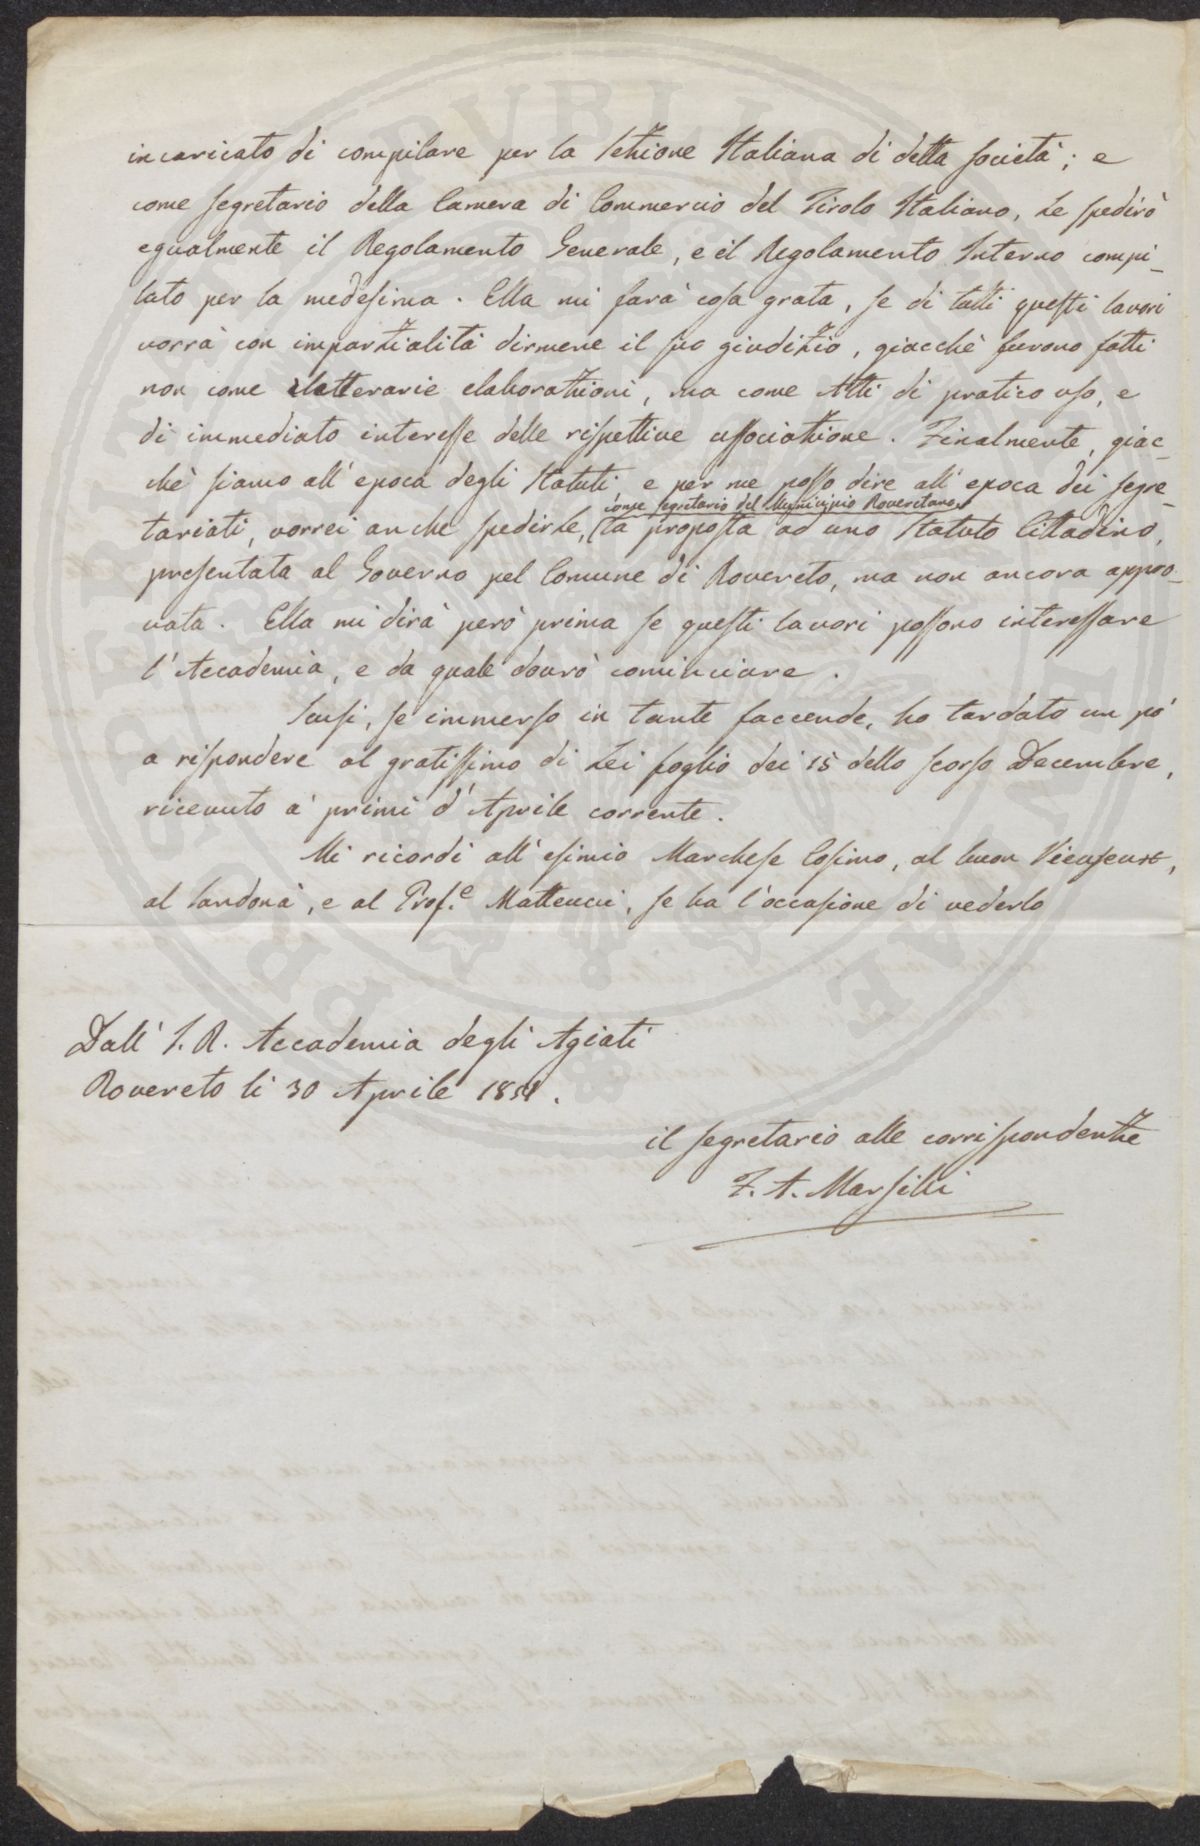 incaricato di compilare per la Sezione Italiana di detta Società; e
come Segretario della Camera di Commercio del Tirolo Italiano, Le spedirò
egualmente il Regolamento Generale, e il Regolamento Interno compi-
lato per la medesima. Ella mi farà cosa grata, se di tutti questi lavori
vorrà con imparzialità dirmene il suo giudizio, giacchè furono fatti
non come letterarie elaborazioni, ma come Atti di pratico uso, e
di immediato interesse delle rispettive associazione. Finalmente, giac-
chè siamo all'epoca degli Statuti e per me posso dire all'epoca dei segre-
come Segretario del Municipio Roveretano
tariati, vorrei anche spedirLe, la proposta ad uno Statuto Cittadino,
presentata al Governo pel Comune di Rovereto, ma non ancora appro-
vata. Ella mi dirà però prima se questi lavori possono interessare
l'Accademia, e da quale dovrò cominciare.
Scusi, se immerso in tante faccende, ho tardato un pò
a rispondere al gratissimo di Lei foglio dei 15 dello scorso Decembre,
ricevuto a' primi d'Aprile corrente.
Mi ricordi all'esimio Marchese Cosimo, al buon Vieusseux,
al Landonà, e al Prof.e Matteucci, se ha l'occasione di vederlo
Dall' I. R. Accademia degli Agiati
Rovereto li 30 Aprile 1851.
il segretario alle corrispondenze
F. A. Marsilli